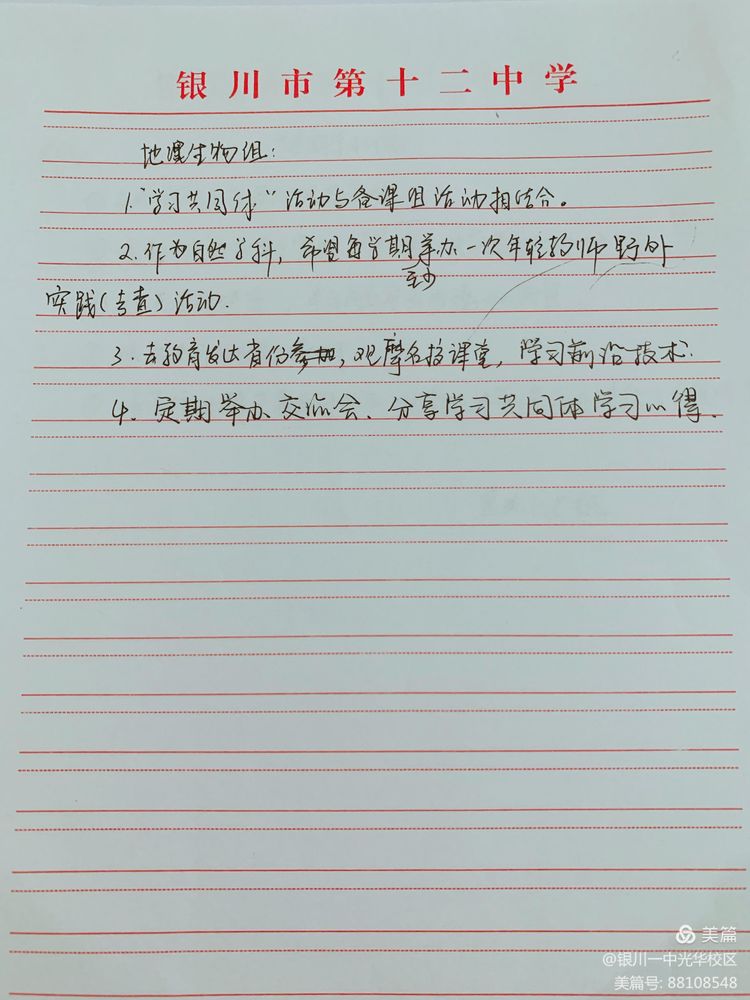 银川市第十二中学
地理生物组:
1."学习共同体"活动与备课组活动相结合。
2.作为自然学科,希望每学期举办一次年轻教师野外
至少
实践(考查)活动.
3.去教育发达省份参加,观摩名校课堂,学习前沿技术.
4.定期举办交流会、分享学习共同体学习心得.
美篇
@银川一中光华校区
美篇号: 88108548